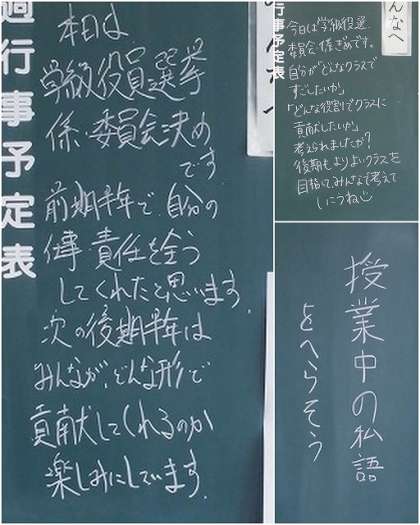 週行事予定表
本日は
学級役員選挙
係・委員会決め
です
前期半年で、自分の
仕事、責任を全う
してくれたと思います。
次の後期半年は
みんなが、どんな形で
貢献してくれるのか
楽しみにしています。
んなへ
行事予定表
今日は学級役選
委員会・係きめです。
自分が「どんなクラスで
すごしたいか」
「どんな役割でクラスに
貢献したいか」
考えられましたか?
後期もよりよいクラスを
目指してみんなで考えて
いこうね
授業中の私語
をへらそう